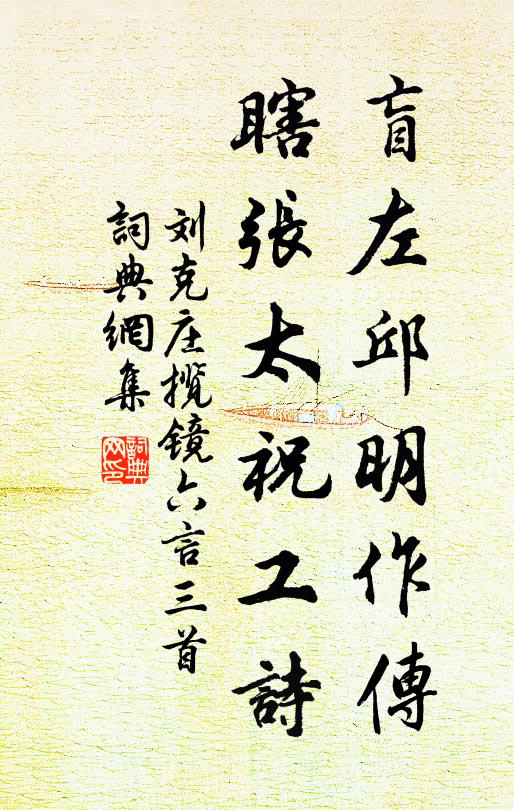 盲左邱明作傳
瞎張太祝工詩
刘克庄揽镜六言三首
詞典網集
詞典網印